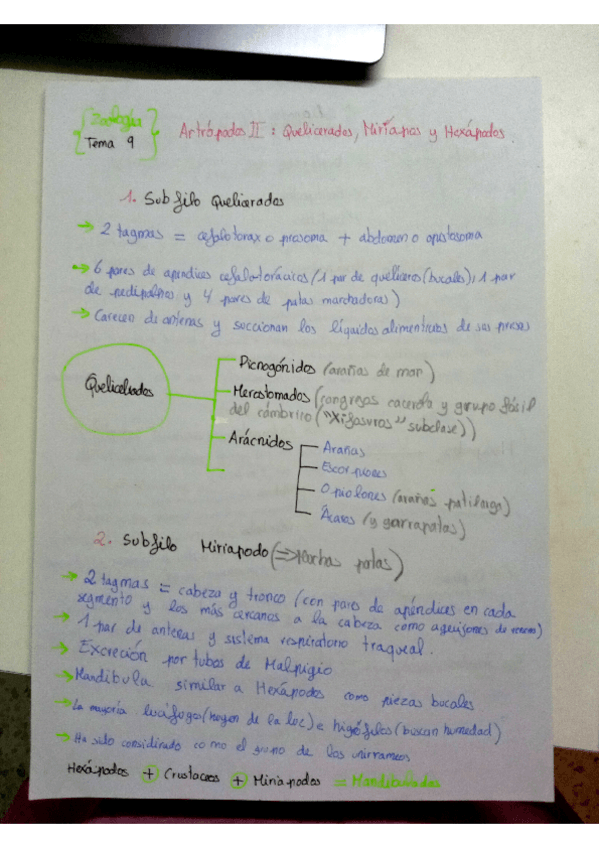 Zoología
Tema 9
Artrópodos II: Quelicerados, Miriapos y Hexápodos.
1. Subfilo Quelicerados
→ 2 tagmas = cefalotorax o prosoma + abdomen o opistosoma
→ 6 pares de apendices cefalotorácicos (1 par de quelíceros (bucales), 1 par
de pedipalpos y 4 pares de patas marchadoras)
→ Carecen de antenas y succionan los líquidos alimenticios de sus presas
Quelicerados
Picnogónidos (arañas de mar)
Merostomados (cangrejos cacerola y grupo fósil
del cámbrico ("Xifosuros" subclase))
Arácnidos
Arañas
Escorpiones
Opiolones (arañas patilarga)
Ácaros (y garrapatas)
2. Subfilo Miriapodo (=> Muchas patas)
→ 2 tagmas = cabeza y tronco (con pares de apéndices en cada
segmento y los más cercanos a la cabeza como aguijones de veneno)
→ 1 par de antenas y sistema respiratorio traqueal.
→ Excreción por tubos de Malpigio
→ Mandíbula similar a Hexápodos como piezas bucales
→ La mayoría lucífogos (huyen de la luz) e higrófilos (buscan humedad)
→ Ha sido considerado como el grupo de los unirrameos
Hexápodos + Crustaceos + Miriapodos = Mandibulados